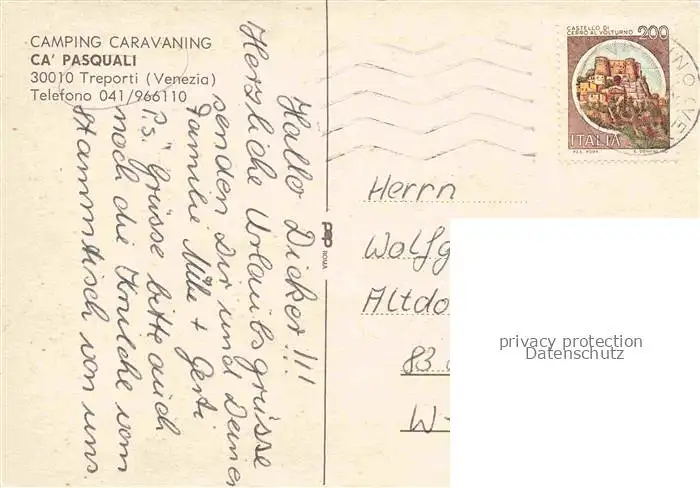 CAMPING CARAVANING
CA' PASQUALI
30010 Treporti (Venezia)
Telefono 041/966110
Hallo Dicker!!!
Herzliche Urlaubsgrüsse
senden Dir und Deiner
Familie Mike + Gerti
P.S. Grüsse bitte auch
noch die vom
Stammtisch von uns.
pep
ROMA
CASTELLO DI
CERRO AL VOLTURNO
200
ITALIA
Herrn
Wolfg
Altdo
83
W-
privacy protection
Datenschutz